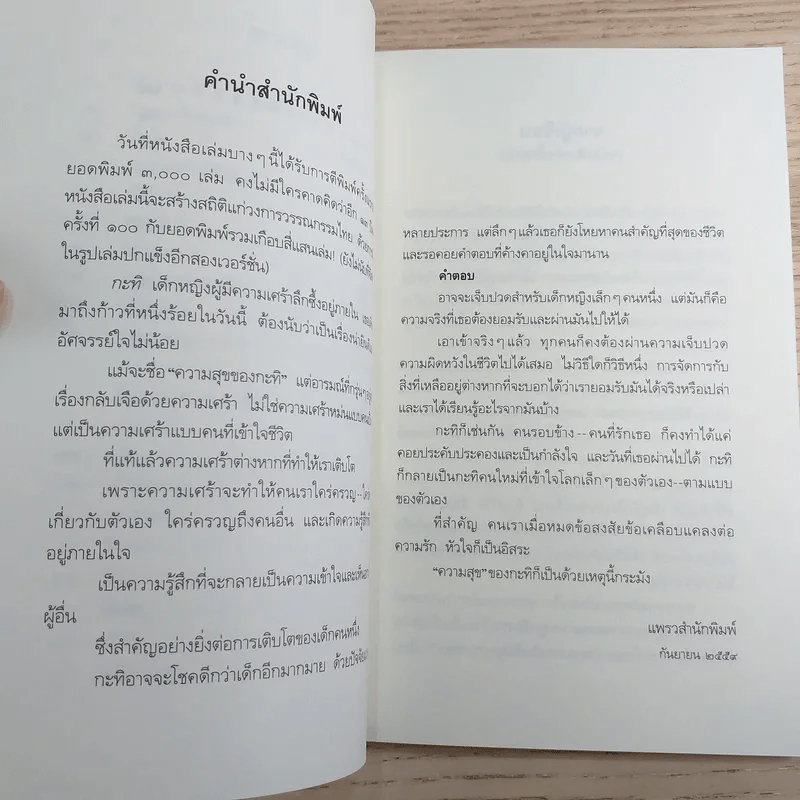 คำนำสำนักพิมพ์
วันที่หนังสือเล่มบางๆ นี้ได้รับการตีพิมพ์ครั้งแรก
ยอดพิมพ์ ๓,๐๐๐ เล่ม คงไม่มีใครคาดคิดว่าอีก
หนังสือเล่มนี้จะสร้างสถิติแก่วงการวรรณกรรมไทย
ครั้งที่ ๑๐๐ กับยอดพิมพ์รวมเกือบสี่แสนเล่ม! (ยังไม่นับ
ในรูปเล่มปกแข็งอีกสองเวอร์ชั่น)
กะทิ เด็กหญิงผู้มีความเศร้าลึกซึ้งอยู่ภายใน
มาถึงก้าวที่หนึ่งร้อยในวันนี้ ต้องนับว่าเป็นเรื่องน่ายินดี
อัศจรรย์ใจไม่น้อย
แม้จะชื่อ “ความสุขของกะทิ” แต่อารมณ์ที่กรุ่นๆ
เรื่องกลับเจือด้วยความเศร้า ไม่ใช่ความเศร้าหม่นแบบ
แต่เป็นความเศร้าแบบคนที่เข้าใจชีวิต
ที่แท้แล้วความเศร้าต่างหากที่ทำให้เราเติบโต
เพราะความเศร้าจะทำให้คนเราใคร่ครวญ--
เกี่ยวกับตัวเอง ใคร่ครวญถึงคนอื่น และเกิดความรู้สึก
อยู่ภายในใจ
เป็นความรู้สึกที่จะกลายเป็นความเข้าใจและ
ผู้อื่น
ซึ่งสำคัญอย่างยิ่งต่อการเติบโตของเด็กคนหนึ่ง
กะทิอาจจะโชคดีกว่าเด็กอีกมากมาย ด้วยปัจจัย
หลายประการ แต่ลึกๆ แล้วเธอก็ยังโหยหาคนสำคัญที่สุดของชีวิต
และรอคอยคำตอบที่ค้างคาอยู่ในใจมานาน
คำตอบ
อาจจะเจ็บปวดสำหรับเด็กหญิงเล็กๆ คนหนึ่ง แต่มันก็คือ
ความจริงที่เธอต้องยอมรับและผ่านมันไปให้ได้
เอาเข้าจริงๆ แล้ว ทุกคนก็คงต้องผ่านความเจ็บปวด
ความผิดหวังในชีวิตไปได้เสมอ ไม่วิธีใดก็วิธีหนึ่ง การจัดการกับ
สิ่งที่เหลืออยู่ต่างหากที่จะบอกได้ว่าเรายอมรับมันได้จริงหรือเปล่า
และเราได้เรียนรู้อะไรจากมันบ้าง
กะทิก็เช่นกัน คนรอบข้าง--คนที่รักเธอ ก็คงทำได้แค่
คอยประคับประคองและเป็นกำลังใจ และวันที่เธอผ่านไปได้ กะทิ
ก็กลายเป็นกะทิคนใหม่ที่เข้าใจโลกเล็กๆ ของตัวเอง--ตามแบบ
ของตัวเอง
ที่สำคัญ คนเราเมื่อหมดข้อสงสัยข้อเคลือบแคลงต่อ
ความรัก หัวใจก็เป็นอิสระ
“ความสุข” ของกะทิก็เป็นด้วยเหตุนี้กระมัง
แพรวสำนักพิมพ์
กันยายน ๒๕๕๙